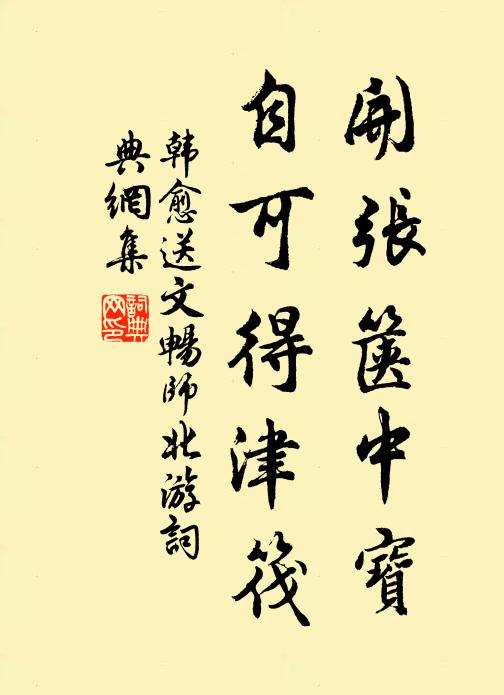 開張篋中寶
自可得津筏
韩愈送文暢師北游詞
典網集
詞典
网印